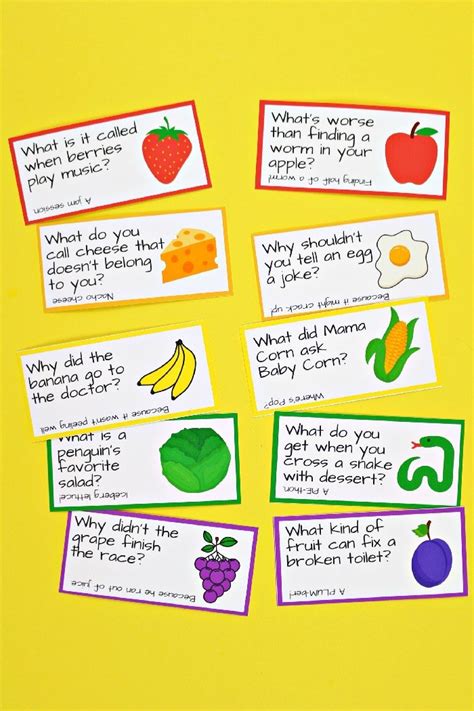 What is it called
when berries
play music?
A jam session
What's worse
than finding a
worm in your
apple?
Finding half of a worm!
What do you
call cheese that
doesn't belong
to you?
Nacho cheese
Why shouldn't
you tell an egg
a joke?
Because it might crack up!
Why did the
banana go to
the doctor?
Because it wasn't peeling well
What did Mama
Corn ask
Baby Corn?
Where's Pop?
What is a
penguin's
favorite
salad?
Iceberg lettuce!
What do you
get when you
cross a snake
with dessert?
A PIE-thon
Why didn't the
grape finish
the race?
Because he ran out of juice
What kind of
fruit can fix a
broken toilet?
A PLUMber!